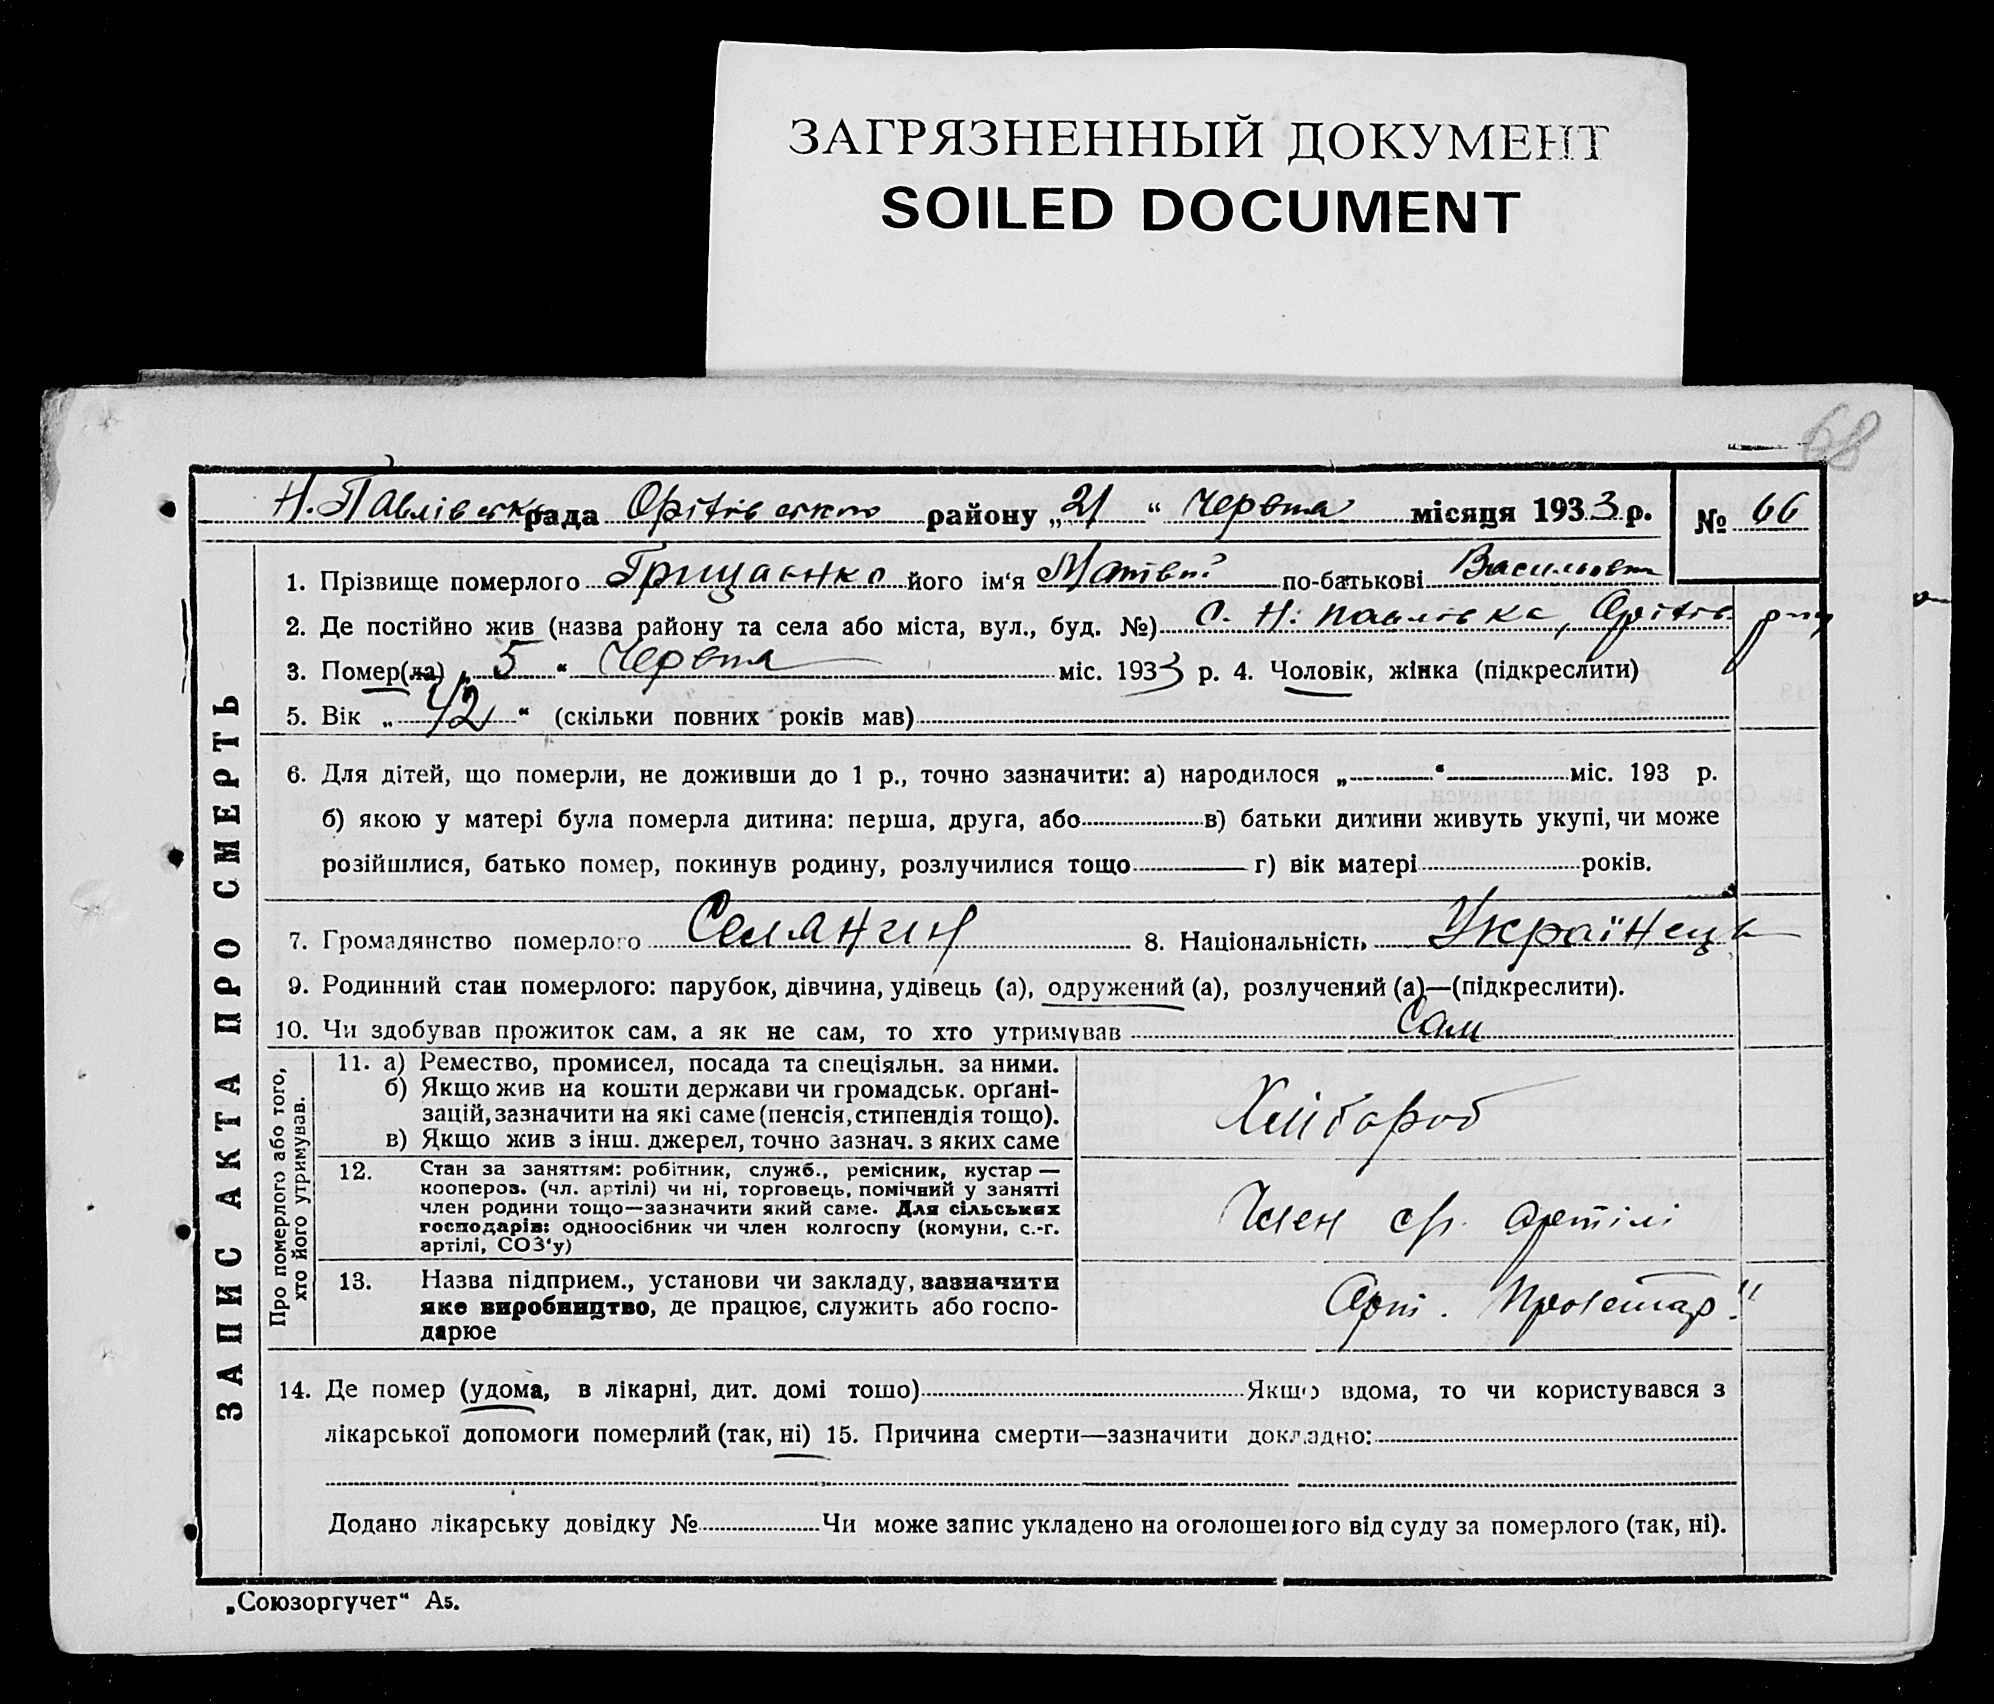 ЗАГРЯЗНЕННЫЙ ДОКУМЕНТ
SOILED DOCUMENT
68
Н. Павлівська рада Оріхівського району „21“ червня місяця 1933 р. № 66
ЗАПИС АКТА ПРО СМЕРТЬ
1. Прізвище померлого Грищенко його ім‘я Матвій по-батькові Васильович
2. Де постійно жив (назва району та села або міста, вул., буд. №) С. Н. Павлівка, Оріхів. р-ну
3. Помер(ла) „5“ червня міс. 1933 р. 4. Чоловік, жінка (підкреслити)
5. Вік „42“ (скільки повних років мав)
6. Для дітей, що померли, не доживши до 1 р., точно зазначити: а) народилося „ “ міс. 193 р.
б) якою у матері була померла дитина: перша, друга, або в) батьки дитини живуть укупі, чи може
розійшлися, батько помер, покинув родину, розлучилися тощо г) вік матері років.
7. Громадянство померлого Селянин 8. Національність Українець
9. Родинний стан померлого: парубок, дівчина, удівець (а), одружений (а), розлучений (а)—(підкреслити).
10. Чи здобував прожиток сам, а як не сам, то хто утримував Сам
Про померлого або того,
хто його утримував.
11. а) Ремество, промисел, посада та спеціяльн. за ними.
б) Якщо жив на кошти держави чи громадськ. орґані-
зацій, зазначити на які саме (пенсія, стипендія тощо).
в) Якщо жив з інш. джерел, точно зазнач. з яких саме
Хлібороб
12. Стан за заняттям: робітник, служб., ремісник, кустар —
коопероз. (чл. артілі) чи ні, торговець, помічний у занятті
член родини тощо—зазначити який саме. Для сільських
господарів: одноосібник чи член колгоспу (комуни, с.-г.
артілі, СОЗ‘у)
Член артілі
13. Назва підприєм., установи чи закладу, зазначити
яке виробництво, де працює, служить або госпо-
дарює
Арт. Пролетар"
14. Де помер (удома, в лікарні, дит. домі тошо) Якщо вдома, то чи користувався з
лікарської допомоги померлий (так, ні) 15. Причина смерти—зазначити докладно:
Додано лікарську довідку № Чи може запис укладено на оголошеного від суду за померлого (так, ні).
„Союзоргучет“ А5.